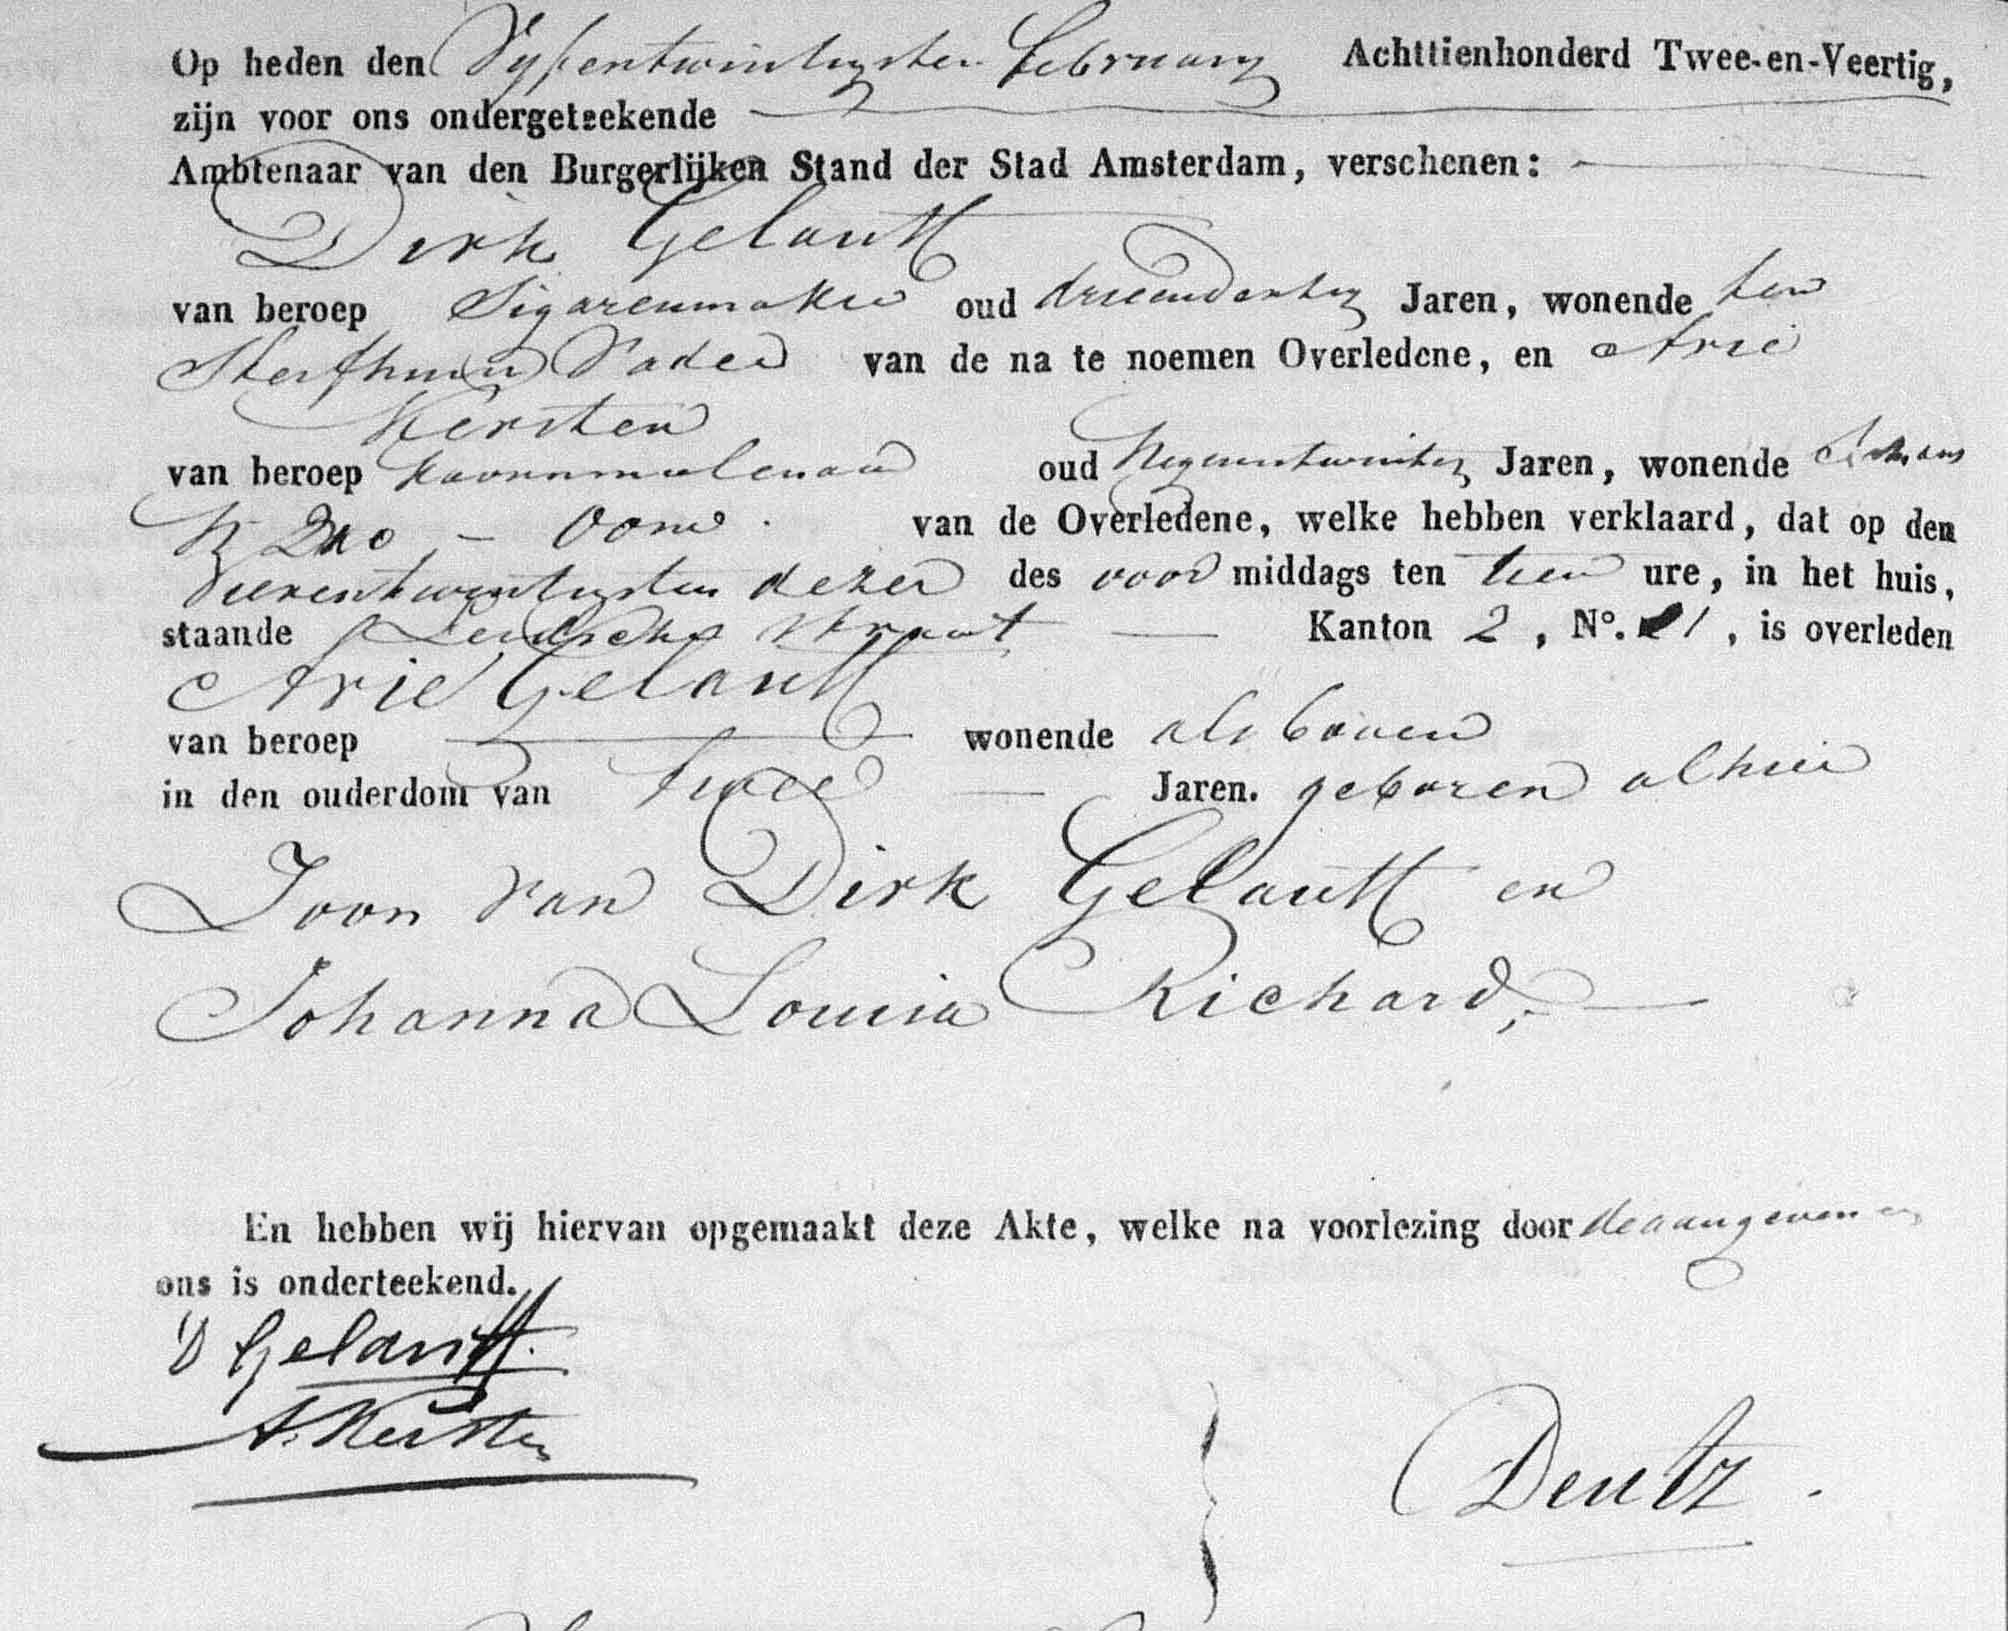 Op heden den Vyfentwintigsten February Achttienhonderd Twee-en-Veertig,
zijn voor ons ondergeteekende
Ambtenaar van den Burgerlijken Stand der Stad Amsterdam, verschenen:
Dirk Gelauff
van beroep Sigarenmaker oud drieendertig Jaren, wonende ten
Sterfhuize Vader van de na te noemen Overledene, en Arie
Kersten
van beroep Koornmolenaar oud Negenentwintig Jaren, wonende Schans
N - Oom van de Overledene, welke hebben verklaard, dat op den
Vierentwintigsten dezer des voor middags ten tien ure, in het huis,
staande Leidsche straat Kanton 2, N°. , is overleden
Arie Gelauff
van beroep wonende als boven
in den ouderdom van twee Jaren. geboren alhier
Zoon van Dirk Gelauff en
Johanna Louisa Richard,
En hebben wij hiervan opgemaakt deze Akte, welke na voorlezing door de aangevers en
ons is onderteekend.
D Gelauff.
A. Kersten
Deutz.